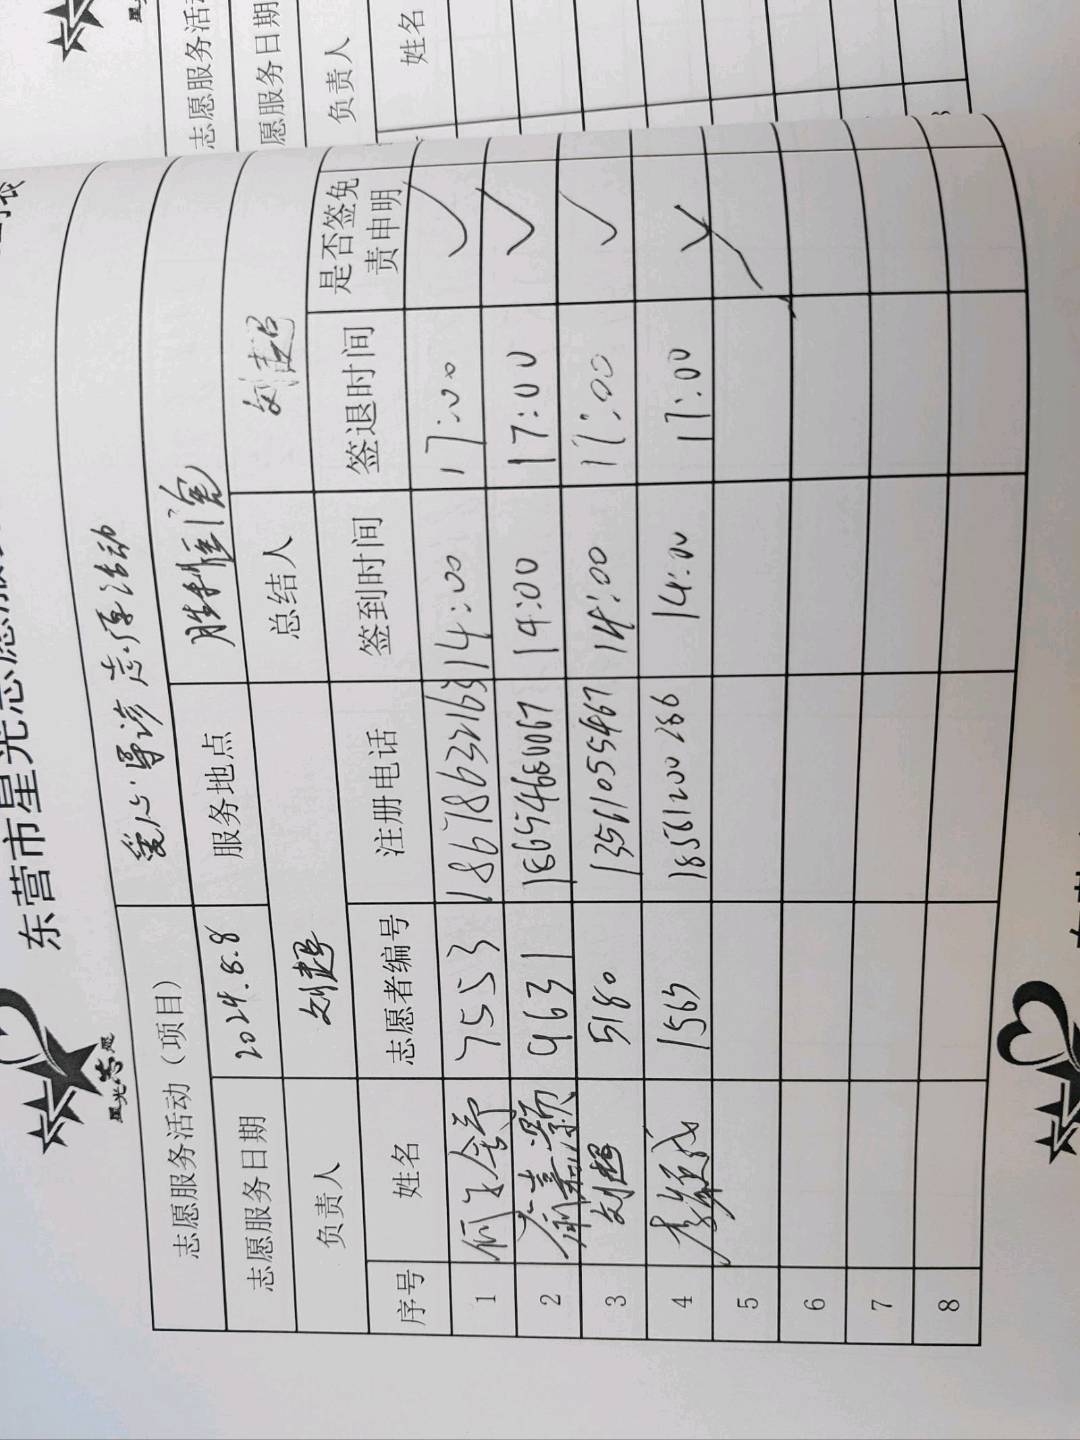 东营市星光志愿服
星光志愿
志愿服务活动（项目） 爱心导诊志愿活动
志愿服务日期 2024.8.8 服务地点 胜利医院
负责人 刘超 总结人 刘超
序号 姓名 志愿者编号 注册电话 签到时间 签退时间 是否签免责申明
1 7553 18678632163 14:00 17:00 ✓
2 9631 18654680067 14:00 17:00 ✓
3 刘超 5180 13561055467 14:00 17:00 ✓
4 1565 18561200286 14:00 17:00 ✓
5
6
7
8
志愿服务活动
愿服务日期
负责人
姓名